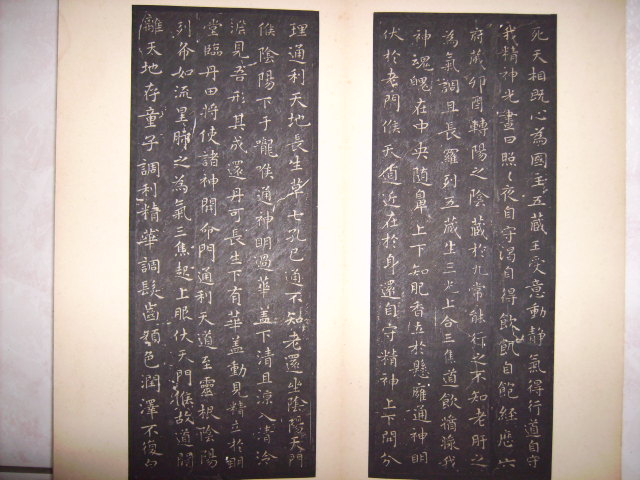 死天相既心為國主五藏王受意動靜氣得行道自守
我精神光晝日照〻夜自守渴自得飲飢自飽經歷六
府藏卯酉轉陽之陰藏於九常能行之不知老肝之
為氣調且長羅列五藏生三光上合三焦道飲漿我
神魂魄在中央隨鼻上下知肥香立於懸膺通神明
伏於老門候天道近在於身還自守精神上下開分
理通利天地長生草七孔已通不知老還坐陰陽天門
候陰陽下于嚨喉通神明過華蓋下清且涼入清泠
淵見吾形其成還丹可長生下有華蓋動見精立於明
堂臨丹田將使諸神開命門通利天道至靈根陰陽
列布如流星肺之為氣三焦起上服伏天門候故道闚
離天地存童子調利精華調髮齒顏色潤澤不復白